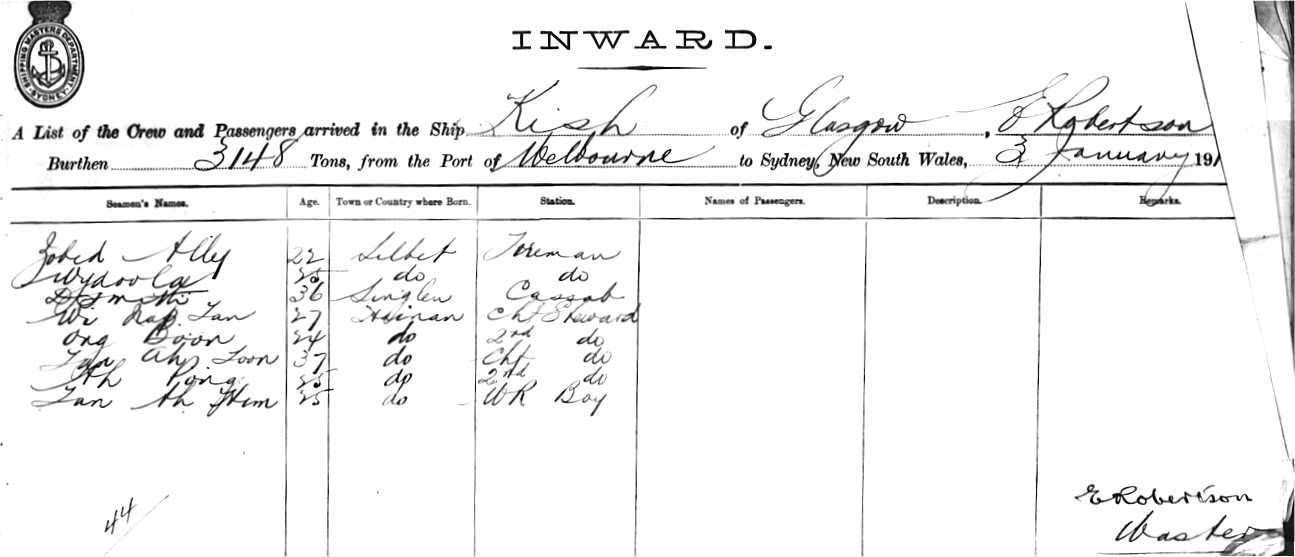 SHIPPING MASTERS DEPARTMENT SYDNEY
INWARD.
A List of the Crew and Passengers arrived in the Ship Kish of Glasgow, E Robertson
Burthen 3148 Tons, from the Port of Melbourne to Sydney, New South Wales, 3 January 191
Seamen's Names. Age. Town or Country where Born. Station. Names of Passengers. Description. Remarks.
Zobed Ally 22 Silhet Fireman
25 do do
36 Cassab
Tan 27 Hainan Cht Steward
Ong Boon 24 do 2nd do
Tan Ah Loon 37 do Cht do
Ah Pong 25 do 2nd do
Tan Ah 25 do WR Boy
44
E Robertson
Master